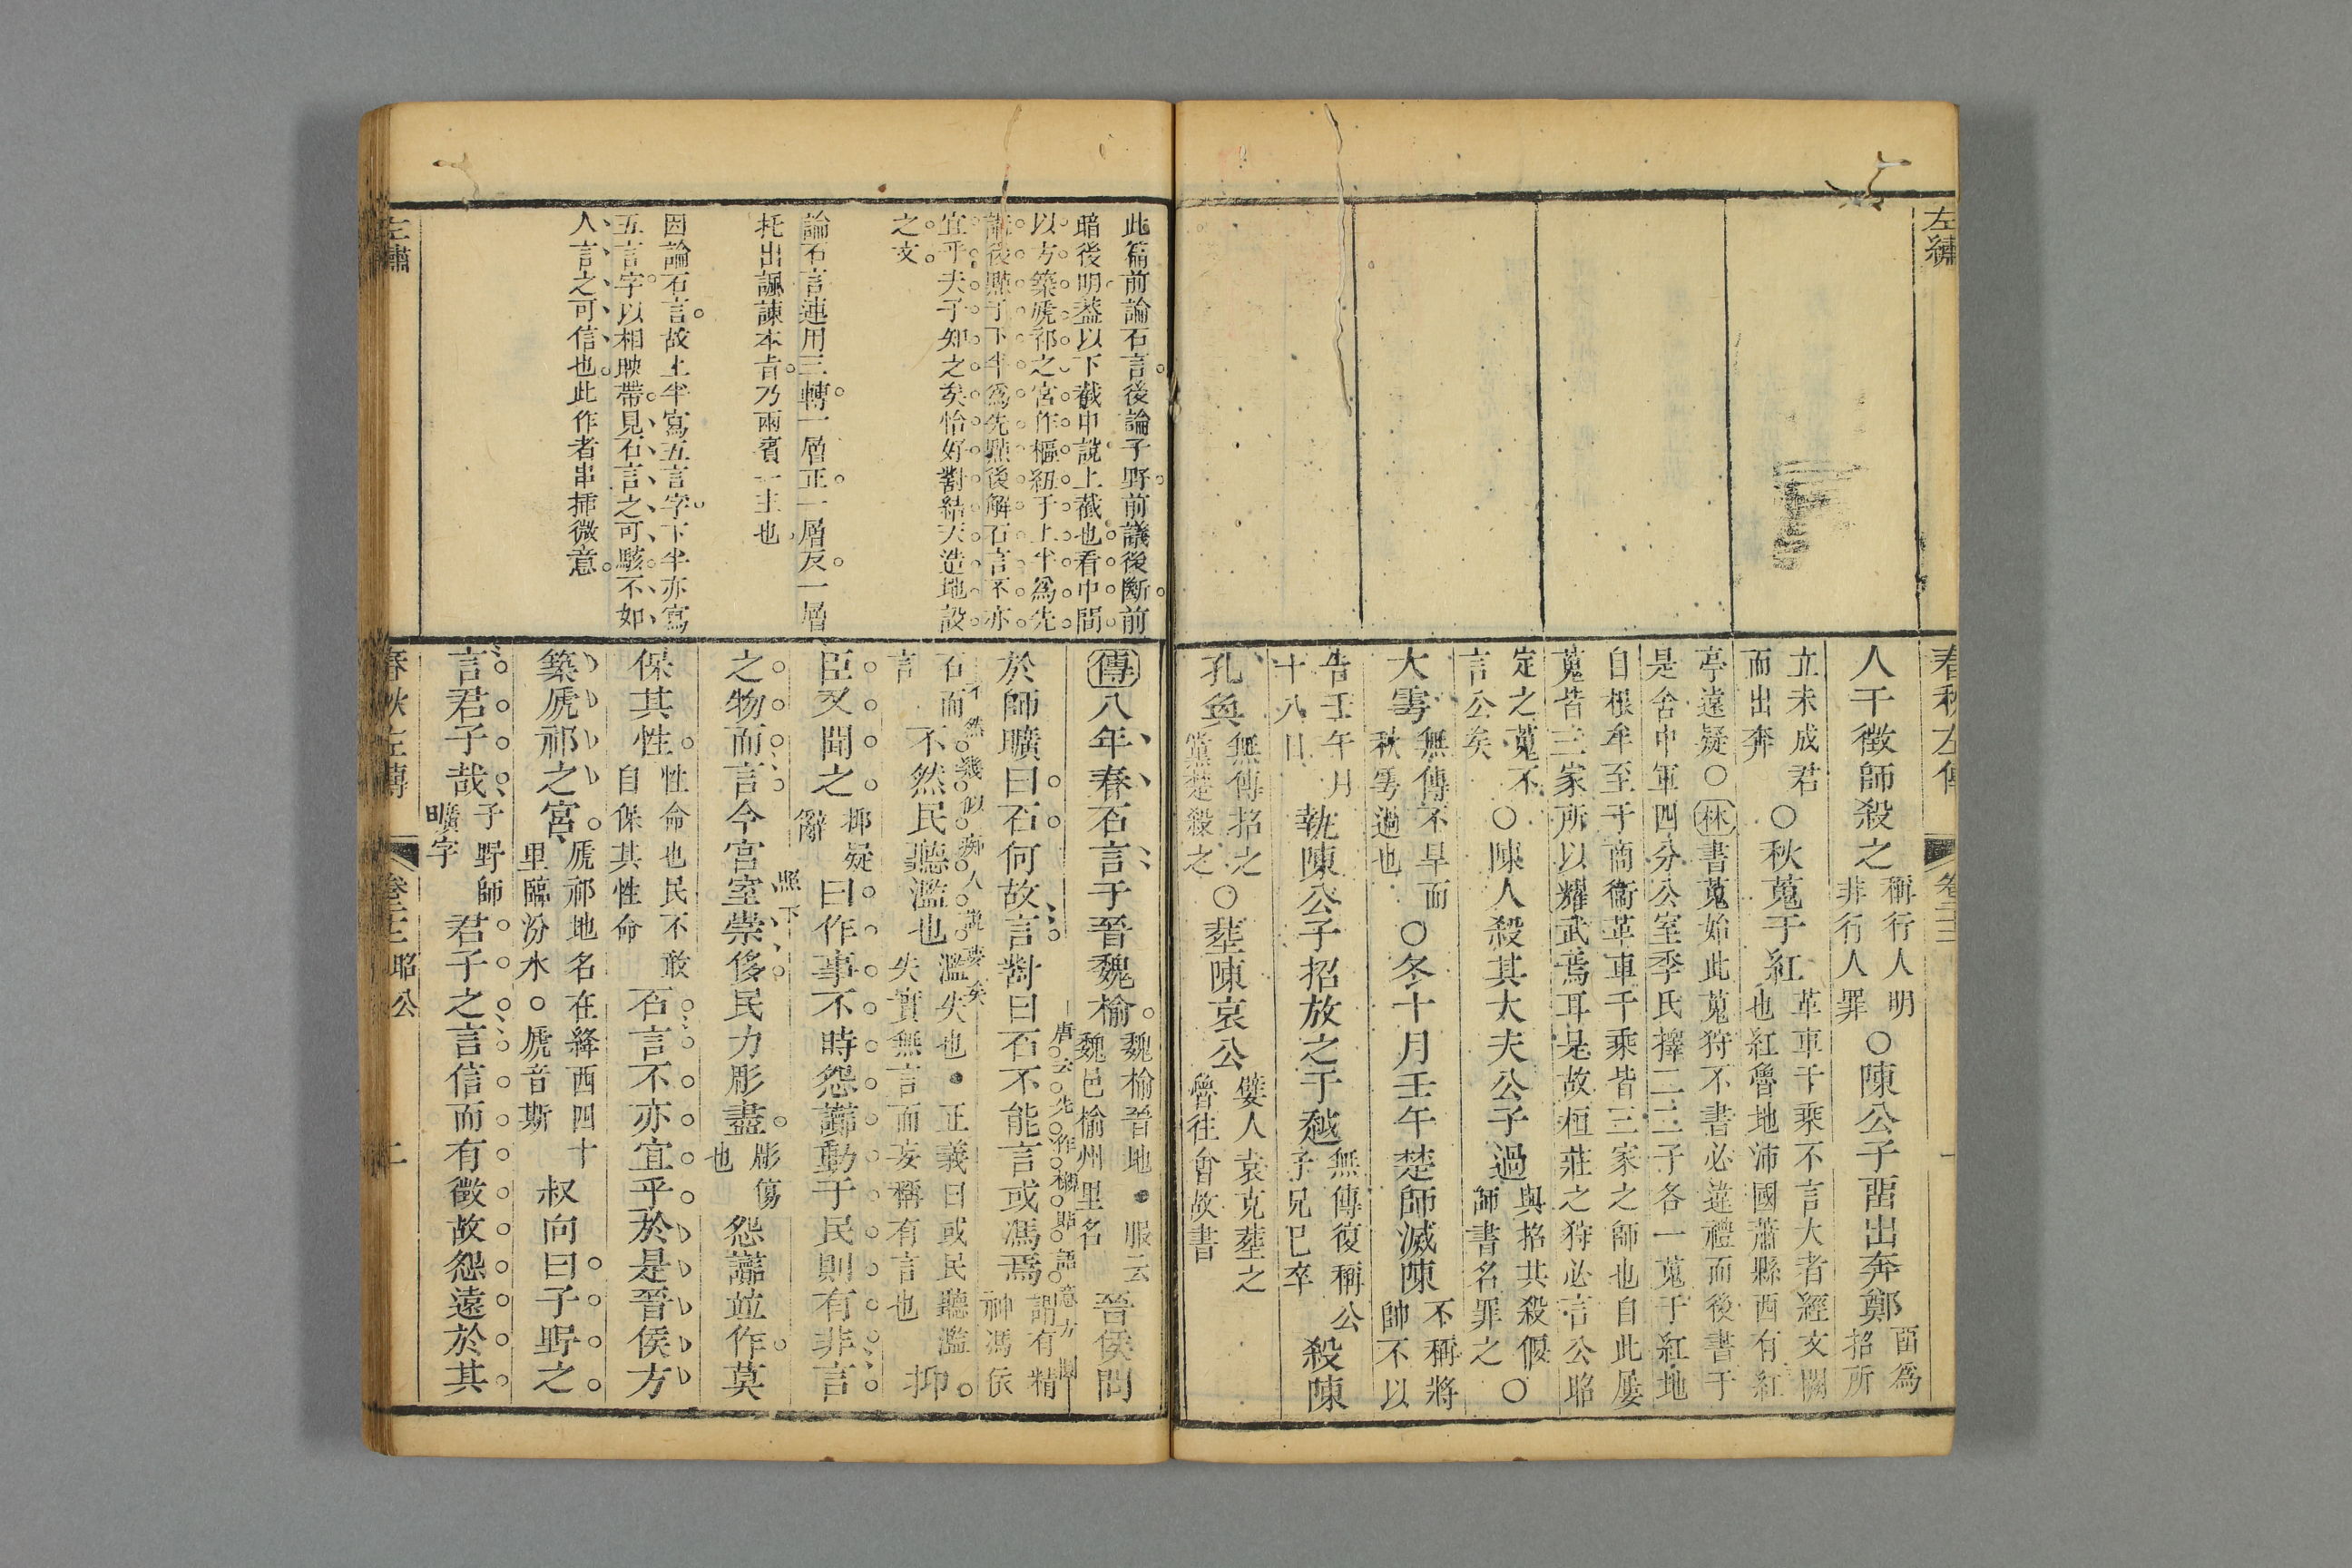 左繡
春秋左傳
卷二十二
人干徵師殺之稱行人明非行人罪○陳公子畱出奔鄭畱爲招所
立未成君而出奔○秋蒐于紅革車千乘不言大者經文闕也紅魯地沛國蕭縣西有紅
亭遠疑○林書蒐始此蒐狩不書必違禮而後書于是舍中軍四分公室季氏擇二二子各一蒐于紅地
自根牟至于商衞革車千乘皆三家之師也自此屢蒐皆三家所以耀武焉耳是故桓莊之狩必言公昭
定之蒐不言公矣○陳人殺其大夫公子過與招共殺偃師書名罪之○
大雩無傳不旱而秋雩過也○冬十月壬午楚師滅陳不稱將帥不以
告壬午月十八日執陳公子招放之于越無傳復稱公子兄巳卒殺陳
孔奐無傳招之黨楚殺之○塟陳哀公嬖人袁克塟之魯往會故書
此篇前論石言後論子野前議後斷前
暗後明葢以下截申說上截也看中間
以方築虒祁之宮作樞紐于上半爲先
議後點于下半爲先點後解石言不亦
宜乎夫子知之矣恰好對結天造地設
之文
論石言連用三轉一層正一層反一層
托出諷諫本旨乃兩賓一主也
因論石言故上半寫五言字下半亦寫
五言字以相映帶見石言之可駭不如
人言之可信也此作者串揷微意
傳八年春石言于晉魏榆魏榆晉地●服云魏邑榆州里名晉侯問
唐云先作欄語意方圓
於師曠曰石何故言對曰石不能言或馮焉謂有精神馮依
不然幾似痴人說夢矣
石而言不然民聽濫也濫失也●正義曰或民聽濫失實無言而妄稱有言也抑
臣又聞之抑疑辭曰作事不時怨讟動于民則有非言
照下
之物而言今宮室崇侈民力彫盡彫傷也怨讟竝作莫
保其性性命也民不敢自保其性命石言不亦宜乎於是晉侯方
築虒祁之宮虒祁地名在絳西四十里臨汾水○虒音斯叔向曰子野之
言君子哉子野師曠字君子之言信而有徵故怨遠於其
左繡
春秋左傳
卷二十二 昭公
二